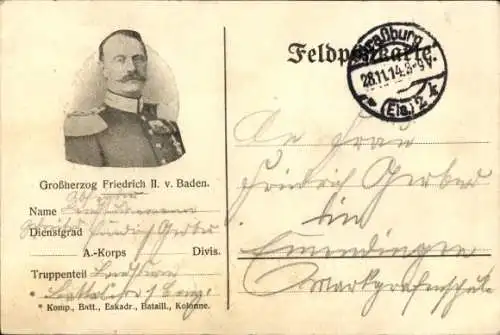 Feldpostkarte.
Straßburg
28.11.14.8-9V.
(Els.) 2 k
Großherzog Friedrich II. v. Baden.
Name
Dienstgrad Gerber
A.-Korps Divis.
Truppenteil
* Komp., Batt., Eskadr., Bataill., Kolonne.
An Frau
Friedrich Gerber
in
Emmendingen
Markgrafenschule